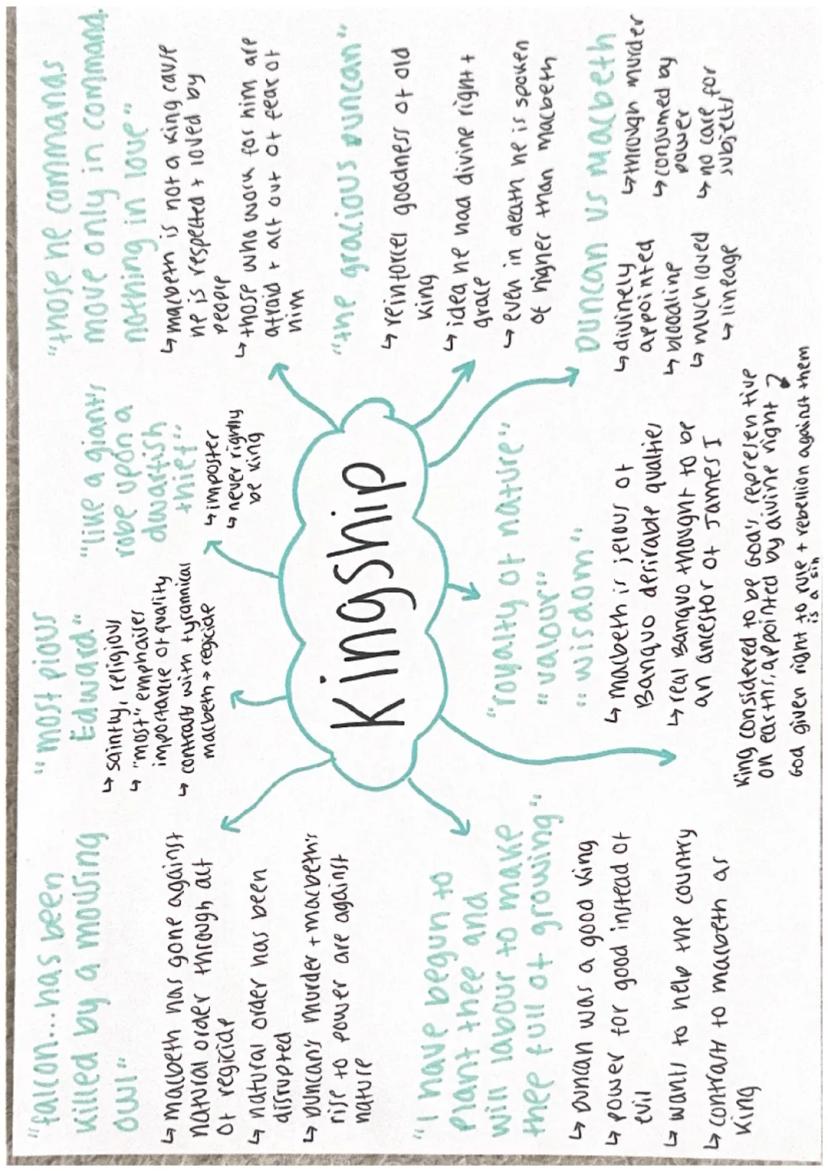 "falcon... has been
killed by a mousing
owl"
↳ macbeth has gone against
natural order through act
of regicide
↳ natural order has been
disrupted
↳ Duncan's murder + macbeth's
rise to power are against
nature
"most pious
Edward"
↳ saintly, religious
↳ "most" emphasises
importance of quality
↳ contrast with tyrannical
macbeth → regicide
"like a giants
robe upon a
dwarfish
thief"
↳ imposter
↳ never rightly
be king
"those he commands
move only in command,
nothing in love"
↳ macbeth is not a king cause
he is respected + loved by
people
↳ those who work for him are
afraid + act out of fear of
him
Kingship
"the gracious Duncan"
↳ reinforces goodness of old
king
↳ idea he had divine right +
grace
↳ even in death he is spoken
of higher than macbeth
"I have begun to
plant thee and
will labour to make
thee full of growing"
↳ Duncan was a good king
↳ power for good instead of
evil
↳ wants to help the country
↳ contrast to macbeth as
king
"royalty of nature"
"valour"
"wisdom"
↳ macbeth is jelous of
Banquo desirable qualties
↳ real Banquo thought to be
an ancestor of James I
Duncan vs macbeth
↳ divinely
appointed
↳ bloodline
↳ much loved
↳ lineage
↳ through murder
↳ consumed by
power
↳ no care for
subjects
King considered to be God's representive
on earths, appointed by divine right
God given right to rule + rebellion against them
is a sin